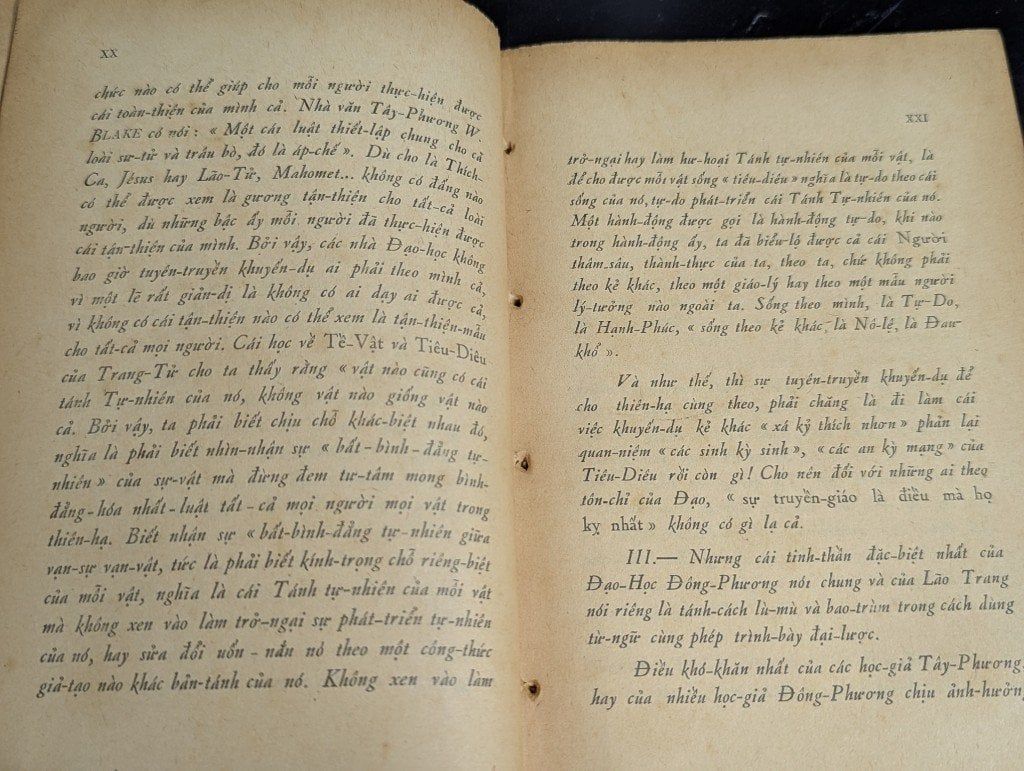 XX
chức nào có thể giúp cho mỗi người thực-hiện được
cái toàn-thiện của mình cả. Nhà văn Tây-Phương W.
BLAKE có nói : « Một cái luật thiết-lập chung cho cả
loài sư-tử và trâu bò, đó là áp-chế ». Dù cho là Thích-
Ca, Jésus hay Lão-Tử, Mahomet... không có đấng nào
có thể được xem là gương tận-thiện cho tất-cả loài
người, dù những bậc ấy mỗi người đã thực-hiện được
cái tận-thiện của mình. Bởi vậy, các nhà Đạo-học không
bao giờ tuyên-truyền khuyến-dụ ai phải theo mình cả,
vì một lẽ rất giản-dị là không có ai dạy ai được cả,
vì không có cái tận-thiện nào có thể xem là tận-thiện-mẫu
cho tất-cả mọi người. Cái học về Tề-Vật và Tiêu-Diêu
của Trang-Tử cho ta thấy rằng « vật nào cũng có cái
tánh Tự-nhiên của nó, không vật nào giống vật nào
cả. Bởi vậy, ta phải biết chịu chỗ khác-biệt nhau đó,
nghĩa là phải biết nhìn-nhận sự « bất-bình-đẳng tự-
nhiên » của sự-vật mà đừng đem tư-tâm mong bình-
đẳng-hóa nhất-luật tất-cả mọi người mọi vật trong
thiên-hạ. Biết nhận sự « bất-bình-đẳng tự-nhiên giữa
vạn-sự vạn-vật, tức là phải biết kính-trọng chỗ riêng-biệt
của mỗi vật, nghĩa là cái Tánh tự-nhiên của mỗi vật
mà không xen vào làm trở-ngại sự phát-triển tự-nhiên
của nó, hay sửa đổi uốn-nắn nó theo một công-thức
giả-tạo nào khác bản-tánh của nó. Không xen vào làm
XXI
trở-ngại hay làm hư-hoại Tánh tự-nhiên của mỗi vật, là
để cho được mỗi vật sống « tiêu-diêu » nghĩa là tự-do theo cái
sống của nó, tự-do phát-triển cái Tánh Tự-nhiên của nó.
Một hành-động được gọi là hành-động tự-do, khi nào
trong hành-động ấy, ta đã biểu-lộ được cả cái Người
thâm-sâu, thành-thực của ta, theo ta, chứ không phải
theo kẻ khác, theo một giáo-lý hay theo một mẫu người
lý-tưởng nào ngoài ta. Sống theo mình, là Tự-Do,
là Hạnh-Phúc, « sống theo kẻ khác, là Nô-lệ, là Đau-
khổ ».
Và như thế, thì sự tuyên-truyền khuyến-dụ để
cho thiên-hạ cùng theo, phải chăng là đi làm cái
việc khuyến-dụ kẻ khác « xá kỷ thích nhơn » phản lại
quan-niệm « các sinh kỳ sinh », « các an kỳ mạng » của
Tiêu-Diêu rồi còn gì ! Cho nên đối với những ai theo
tôn-chỉ của Đạo, « sự truyền-giáo là điều mà họ
kỵ nhất » không có gì lạ cả.
III.— Nhưng cái tinh-thần đặc-biệt nhất của
Đạo-Học Đông-Phương nói chung và của Lão Trang
nói riêng là tánh-cách lù-mù và bao-trùm trong cách dùng
từ-ngữ cùng phép trình-bày đại-lược.
Điều khó-khăn nhất của các học-giả Tây-Phương,
hay của nhiều học-giả Đông-Phương chịu ảnh-hưởng